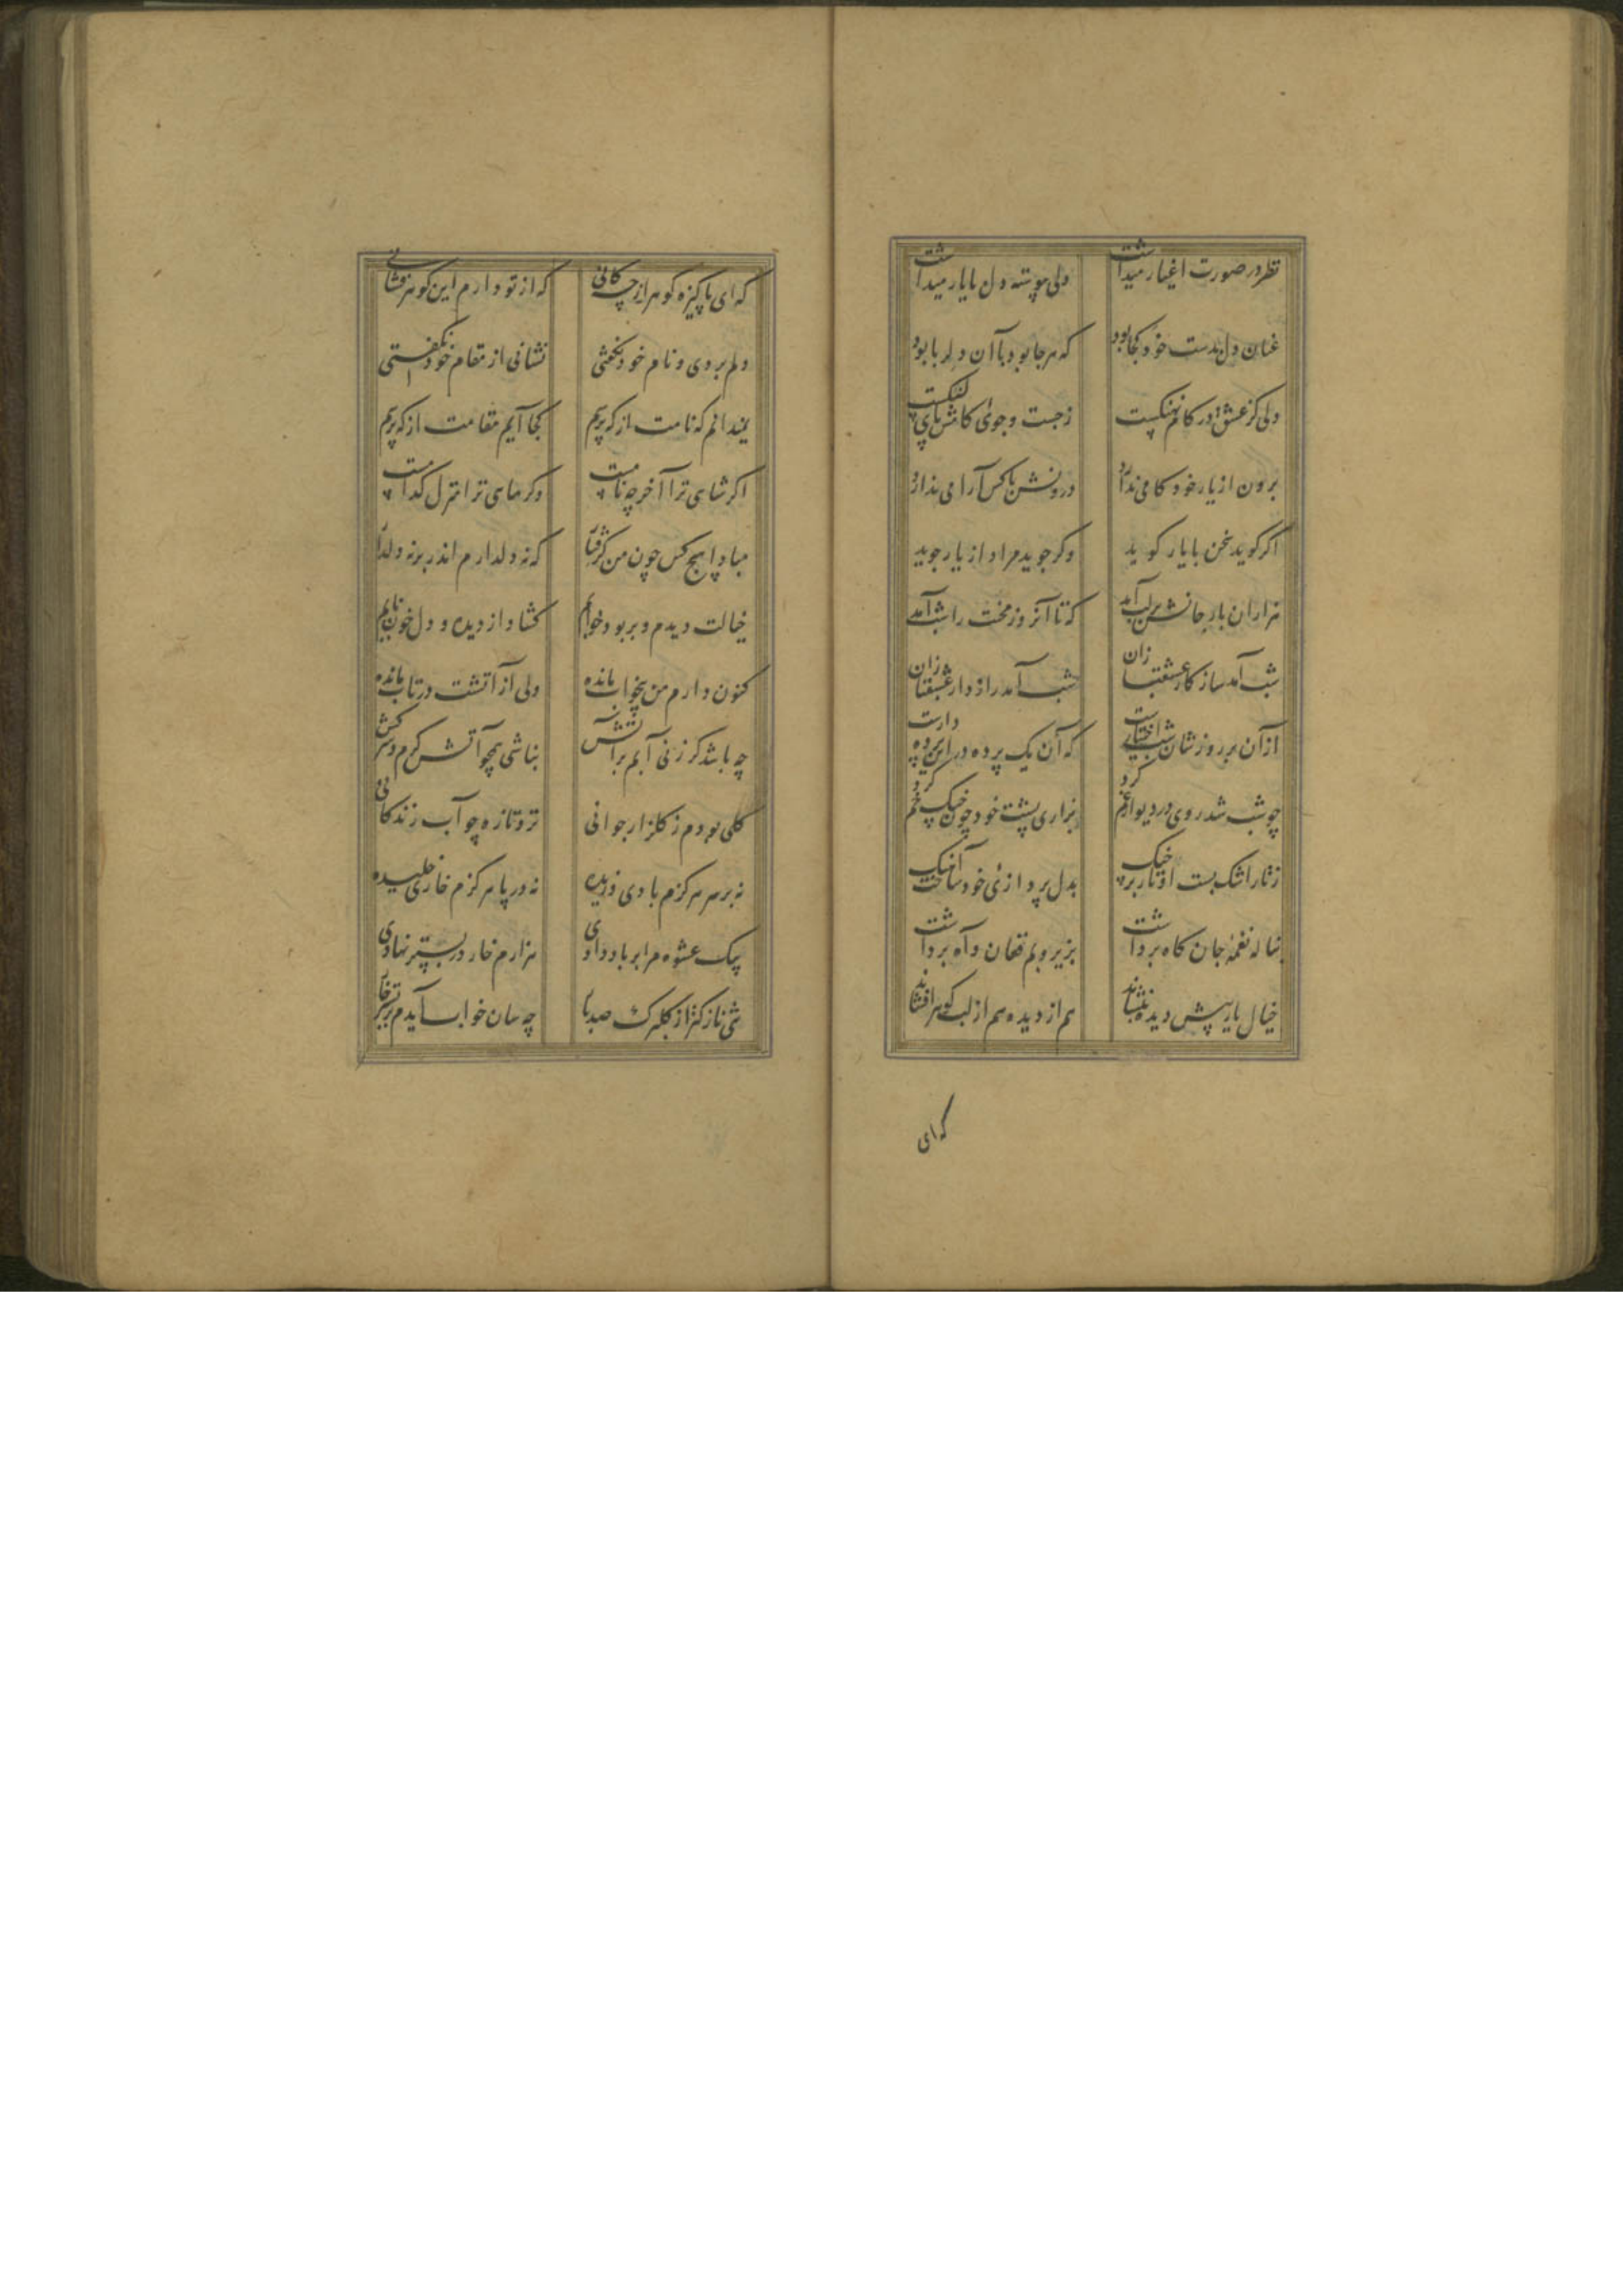 نظر در صورت اغیار میداشت ولی پیوسته دل با یار میداشت
عنان دل بدست خود کجا بود که هر جا بود با آن دلربا بود
ولی کز عشق در کام نهنگست ز جست و جوی کامش پای لنگست
برون از یار خود کامی ندارد درونش با کس آرامی ندارد
اگر گوید سخن با یار گوید وگر جوید مراد از یار جوید
هزاران بار جانش بر لب آمد که تا آنروز محنت را شب آمد
شب آمد سازکار عشقبازان شب آمد رازدار عشقبازان
از آن بر روزشان شب اختیارست که آن یک پرده در این پرده دارست
چو شب شد روی در دیوار غم کرد بزاری پشت خود چون چنگ خم کرد
ز تار اشک بست اوتار بر چنگ بدل پردازئ خود ساخت آهنگ
بناله نغمهٔ جان کاه برداشت بزیر و بم فغان و آه برداشت
خیال یار پیش دیده بنشاند هم از دیده هم از لب گوهر افشاند
که ای
که ای پاکیزه گوهر از چه کانی که از تو دارم این گوهر فشانی
دلم بردی و نام خود نگفتی نشانی از مقام خود نگفتی
نمیدانم که نامت از که پرسم کجا آیم مقامت از که پرسم
اگر شاهی ترا آخر چه نامست وگر ماهی ترا منزل کدامست
مبادا هیچ کس چون من گرفتار که نه دل دارم اندر بر نه دلدار
خیالت دیدم و بربود خوابم گشاد از دیده و دل خون نابم
کنون دارم من بیخواب مانده ولی از آتشت در تاب مانده
چه باشد گر زنی آبم بر آتش نباشی همچو آتش گرم و سرکش
گلی بودم ز گلزار جوانی تر و تازه چو آب زندگانی
نه بر سر هرگزم بادی وزیده نه در پا هرگزم خاری خلیده
بیک عشوه مرا بر باد دادی هزارم خار در بستر نهادی
تنی نازکتر از گلبرگ صد بار چه سان خواب آیدم بر بستر خار